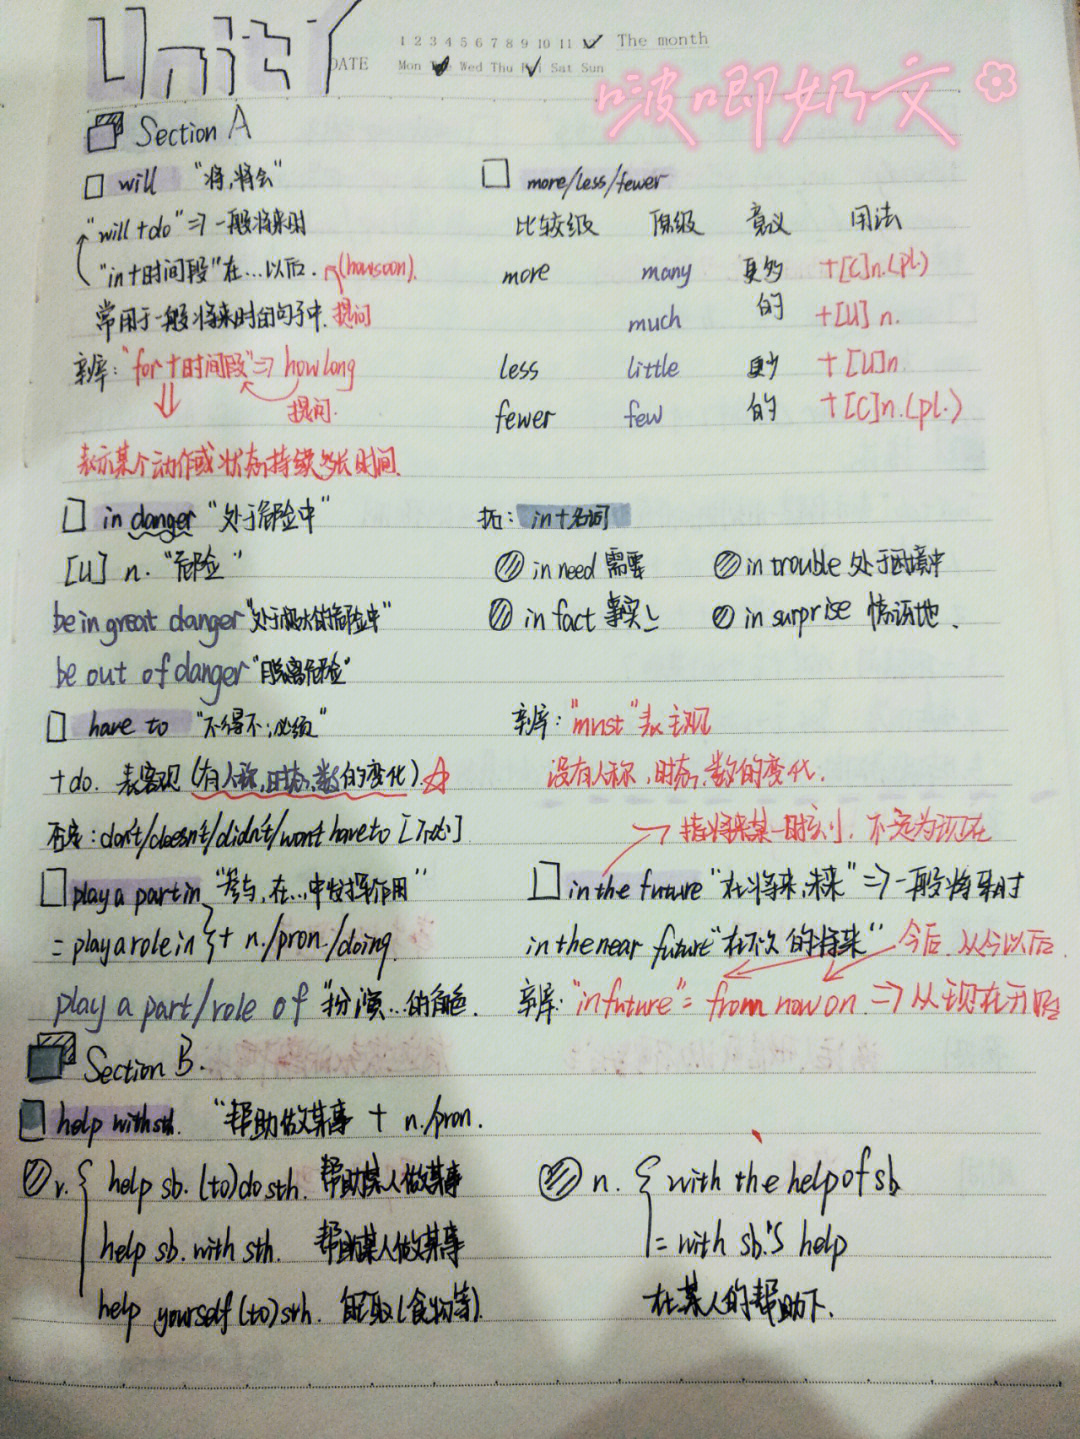 Unit 7
1 2 3 4 5 6 7 8 9 10 11 The month
DATE
Mon Wed Thu Fri Sat Sun
啵唧奶文
Section A
will "将,将会"
"will + do" ⇒ 一般将来时
"in + 时间段" 在...以后. (how soon).
常用于一般将来时的句子中. 提问
辨库: "for + 时间段" ⇒ how long
提问.
表示某个动作或状态持续多长时间.
more/less/fewer
比较级 原级 意义 用法
more many 更多的 +[C]n.(pl.)
much +[U] n.
less little 更少的 +[U]n
fewer few +[C]n.(pl.)
in danger "处于危险中"
[U] n. "危险"
be in great danger "处于极大的危险中"
be out of danger "脱离危险"
拓: in + 名词
in need 需要 in trouble 处于困境中
in fact 事实上 in surprise 惊讶地.
have to "不得不;必须"
+do. 表客观 (有人称,时态,数的变化).
否定: don't/doesn't/didn't/won't have to [不必]
辨库: "must" 表主观
没有人称,时态,数的变化.
play a part in "参与,在...中发挥作用"
= play a role in + n./pron./doing.
play a part/role of "扮演...的角色.
指将来某一时刻, 不定为现在
in the future "在将来,未来" ⇒ 一般将来时
in the near future "在不久的将来" 今后.从今以后.
辨库: "in future" = from now on. ⇒ 从现在开始
Section B.
help with sth. "帮助做某事 + n./pron.
v. help sb. (to) do sth. 帮助某人做某事
help sb. with sth. 帮助某人做某事
help yourself (to) sth. 自取(食物等).
n. with the help of sb
= with sb.'s help
在某人的帮助下.